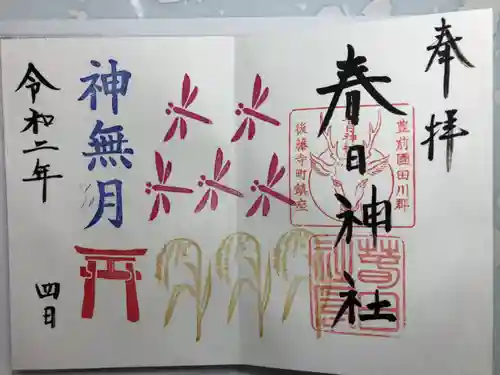 奉拝
春日神社
豊前國田川郡
後藤寺町鎮座
神無月
令和二年
四日